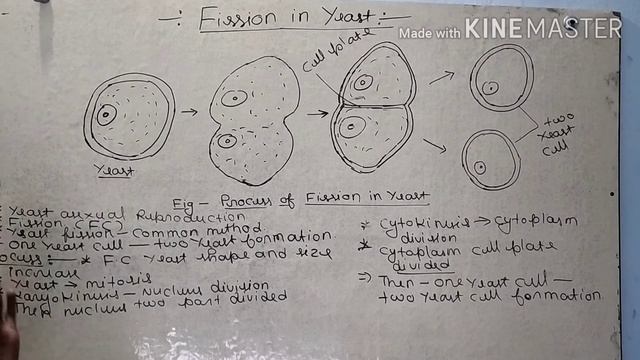 -: Fission in Yeast :-
Made with KINEMASTER
cell plate
Yeast
two
yeast
cell
Fig - Process of Fission in Yeast
Yeast asexual Reproduction
Fission (FC)
Yeast fission - common method.
One yeast cell - two yeast formation.
ocess:- * F.C yeast shape and size
Increase
Yeast → mitosis
Karyokinesis - Nucleus division
Then nucleus two part divided
* Cytokinesis → cytoplasm
division
* Cytoplasm cell plate
divided
⇒ Then - one yeast cell -
two yeast cell formation.